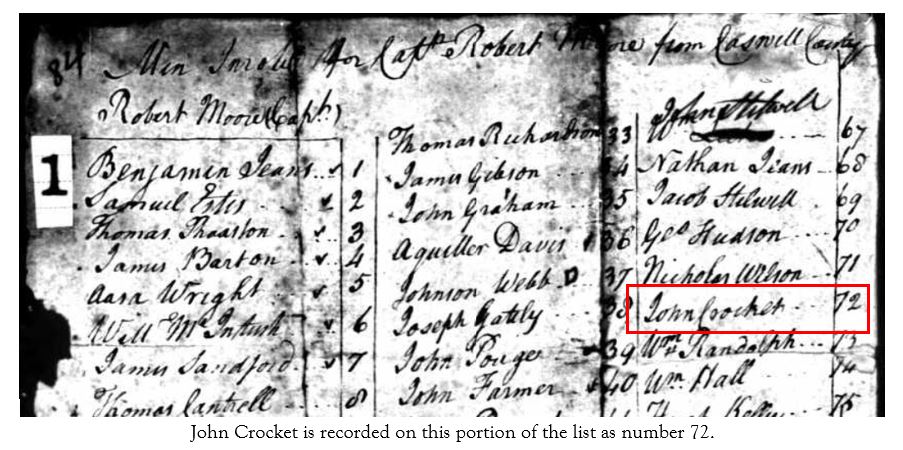 84 Men Inroled for Captn Robert Moore from Caswell County
Robert Moore (Capt.)
1
Benjamin Jeans 1
Samuel Estis 2
Thomas Thaxston 3
James Barton 4
Aara Wright 5
Will McIntush 6
James Sandford 7
Thomas Cantrell 8
Thomas Richardson 33
James Gibson 34
John Graham 35
Aquiller Davis 36
Johnson Webb D 37
Joseph Gatly 38
John Pouge 39
John Farmer 40
John Stilwell 67
Nathan Jeans 68
Jacob Stilwell 69
Geo Hudson 70
Nicholas Wilson 71
John Crocket 72
Wm Randolph 73
Wm Hall 74
Kelly 75
John Crocket is recorded on this portion of the list as number 72.